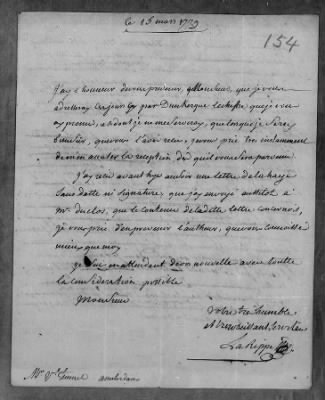 le 15 mars 1779
154
J'ay l'honneur de vous prevenir, Monsieur, que je vous
adresseray ce jour par Dunkerque
promis, dont je ne me serviray, que lorsque je seray
que vous l'avé reçu, je vous prie tres instamment
de m'en accuser la reception dé qu'il vous sera parvenu.
J'ay reçu avant hyer au soir une lettre de la haye
sans datte ni signature, que j'ay envoyé aussitot a
Mr. duclos, que le contenu de ladette lettre concernoit,
je vous prie d'en prevenir l'autheur, que vous connoissé
mieux que moy
je suis en attendant de vos nouvelle avec toutte
la consideration possible
Monsieur
Votre tres humble
et obeissant serviteur
Mr. amsterdam